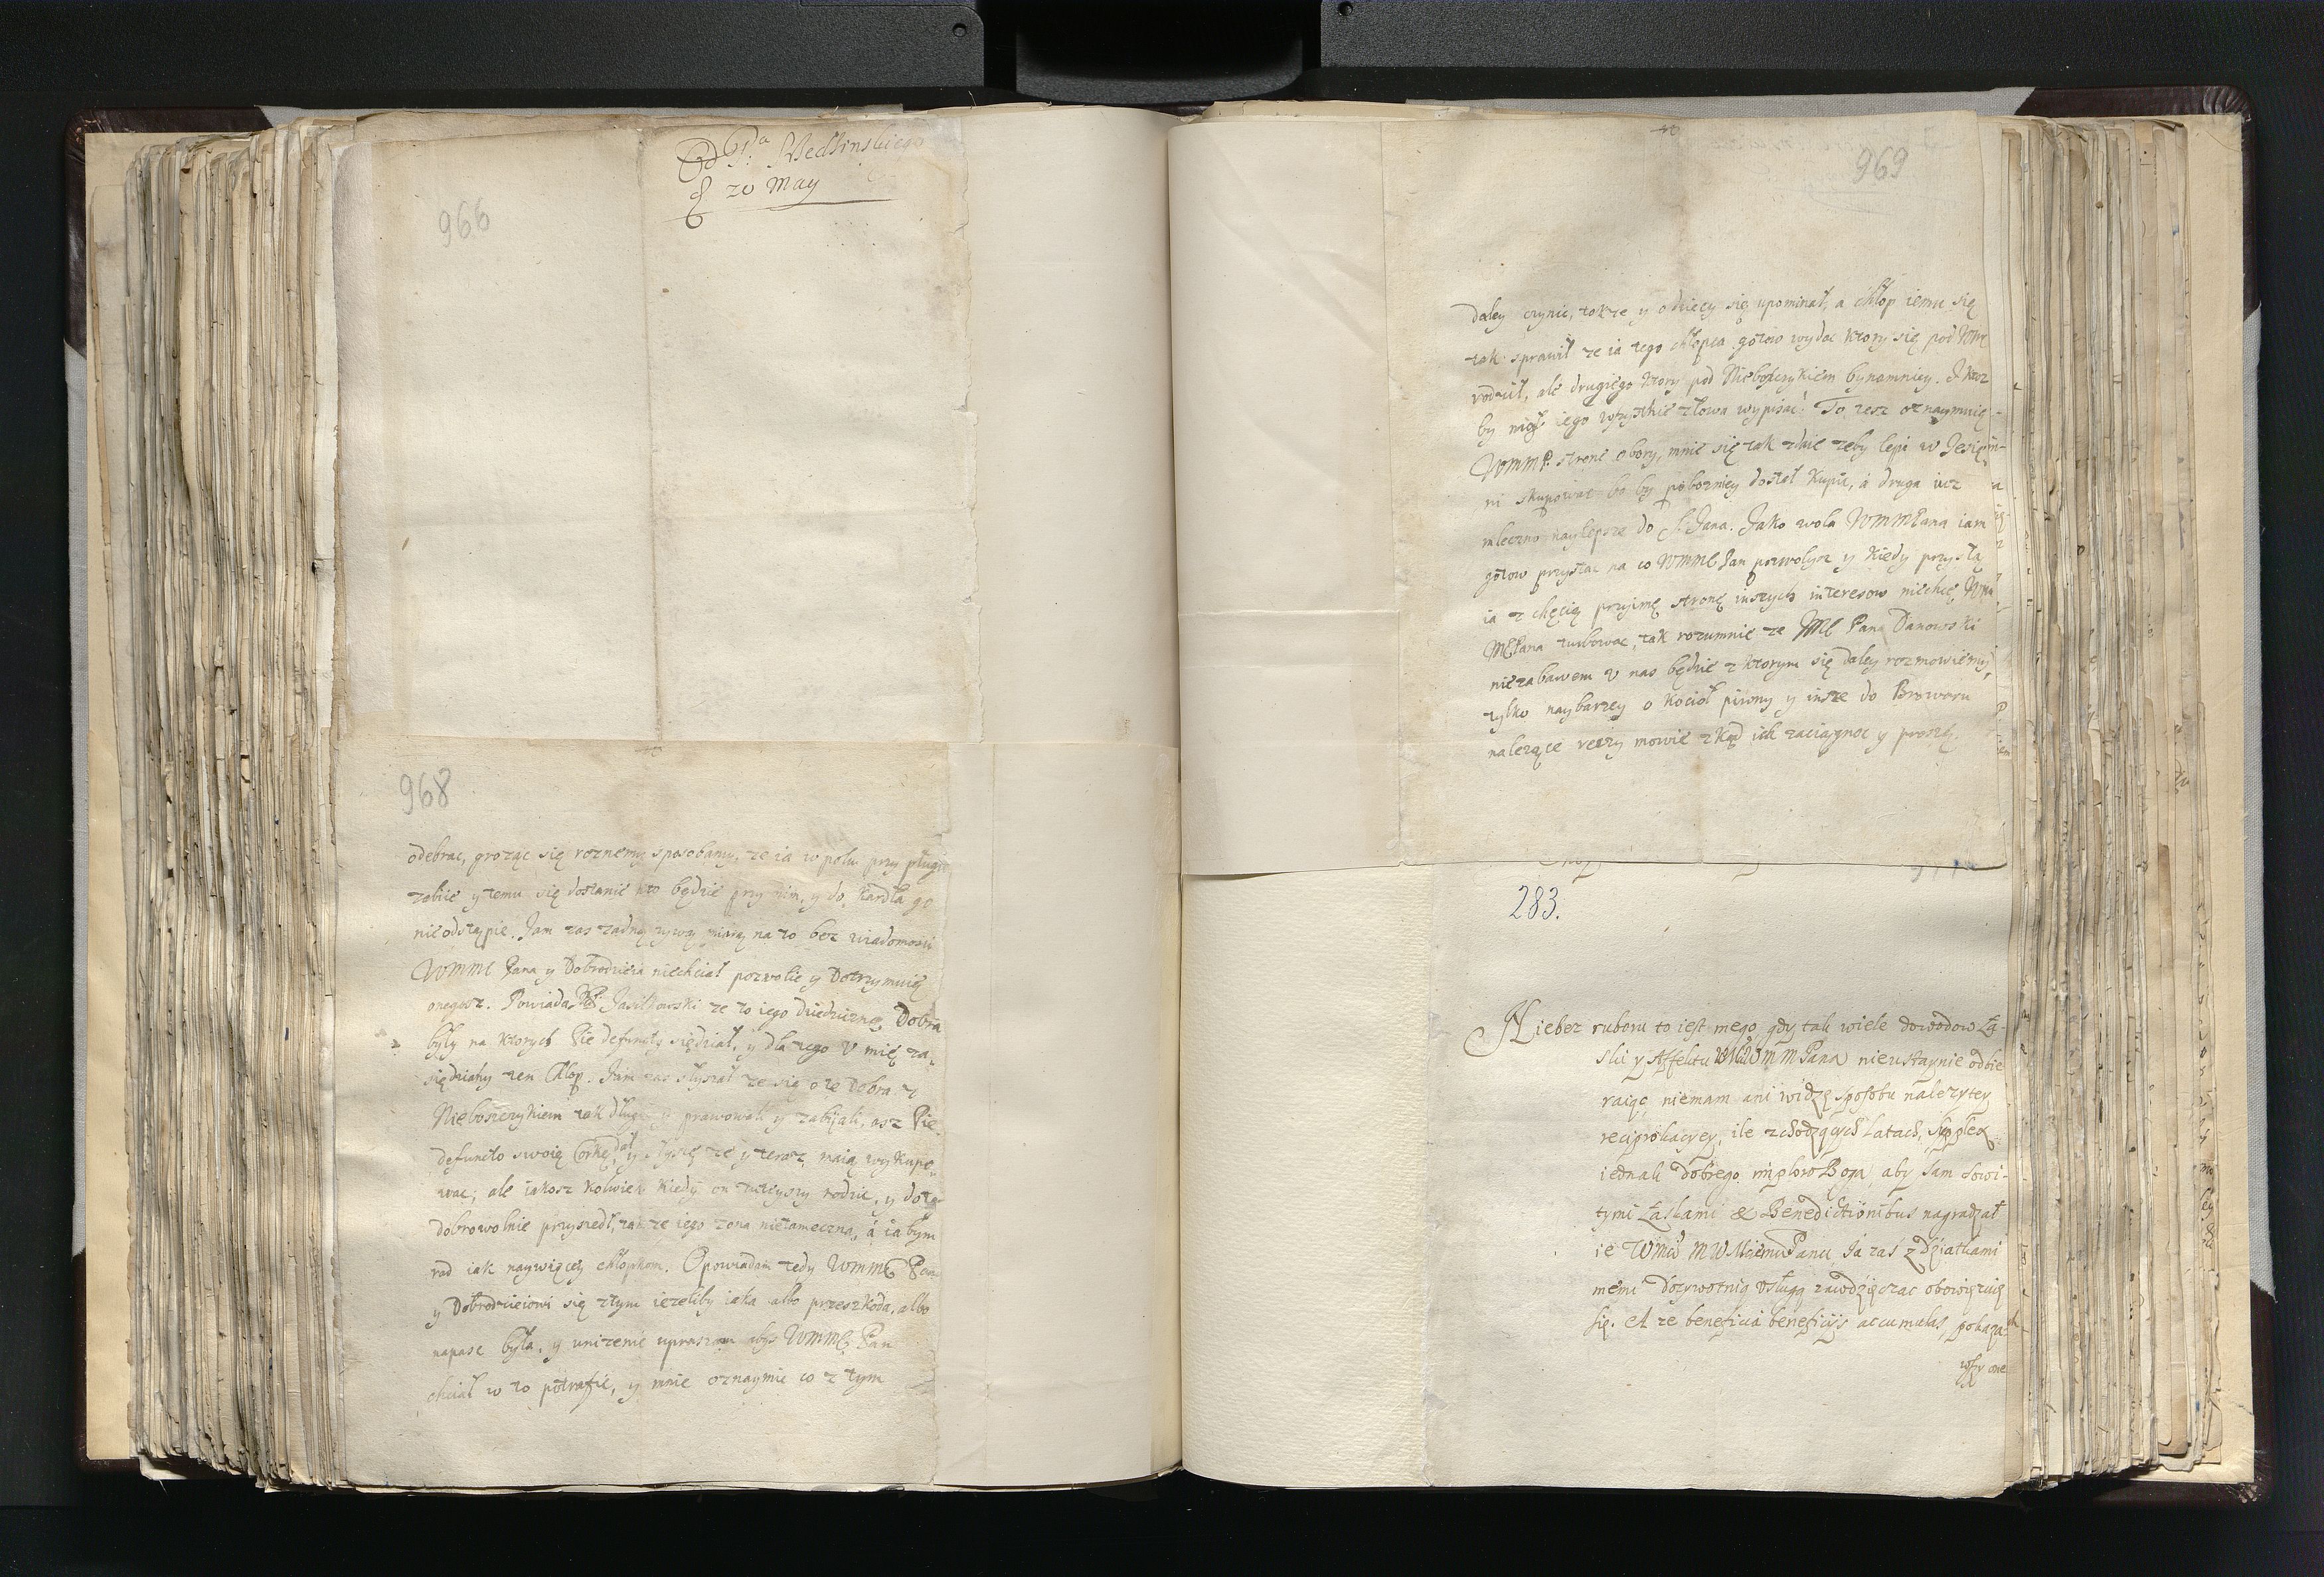 966
20 May
968
odebrac, grożąc się roznemy sposobamy, ze ia w polu przy pługu
zabiie y temu się dostanie kto będzie przy nim, y do gardła go
nie odstąpie. Jam zas zadną zywą miarą na to bez wiadomosci
WMM Pana y Dobrodzieia niechciał pozwolic y Dotrzymuię
onegosz. Powiada JP. Jasilkowski ze to iego dziedziczne Dobra
były na ktorych Pie defunęty siędział, y dla tego v mię za-
siędziały ten Chłop. Jam zas słyszał ze się o te Dobra z
Nieboszczykiem tak długo prawowali y zabijali, asz Pie
defuncto swoię Corkę dał, y słyszę ze y teraz maią wykupo-
wac; ale iakosz kolwiek kiedy on tuteyszy rodzic, y do
dobrowolnie przyszedł, tak ze iego zona nietameczna, á ia bym
rad iak naywięcey chłopkom. Opowiadam tedy WMM Panu
y Dobrodzieiowi się z tym iezeliby iaka albo przeszkoda, albo
napasc była, y unizenie upraszam abys WMM Pan
chciał w to potrafic, y mnie oznaymic co z tym
969
daley czynic, takze y o dzieci się upominał, a chłop iemu się
tak sprawił ze ia tego chłopca gotow wydac ktory się pod WM
rodził, ale drugiego ktory pod Nieboszczykiem bynamniey. I ktoz
by mogł iego wszystkie słowa wypisac! To tesz oznaymuię
WMMP. strone obory, mnie się tak zdaie zeby lepi w Jesięni-
ni skupowac bo by pobozniey dostał kupic, á druga iusz
mleczno naylepsze do S. Jana. Jako wola WMMPana iam
gotow przystac na co WMM Pan pozwolysz y kiedy przysłą
ia z chęcią przyimę stronę inszych interesow niechcę WM
MPana turbowac, tak rozumnie ze JM Pana Danowski
niezabawem v nas będzie z ktorym się daley rozmowiemy,
tylko naybarzey o kocioł piwny y insze do Browaru
nalezące rezczy mowie zkąd ich zaciągnoc y proszę.
283.
Niebez ruboru to iest mego, gdy tak wiele dowodow Ła-
ski y Affektu WMM Pana nieustaynie odbie
raiąc niemam ani widzę sposobu nalezytey
reciprokacyey, ile zchodzących Latach, supplex
iednak dobrego imploro Boga, aby sam sowi-
tymi Łaskami & Benedictionibus nagradzał
ie WMM WMciemu Panu Ja zaś z dziatkami
memi dozywotnią usługą zawdzięczac obowięzuię
się. At ze beneficia beneficijs accumulas, pokaza-
wszy one